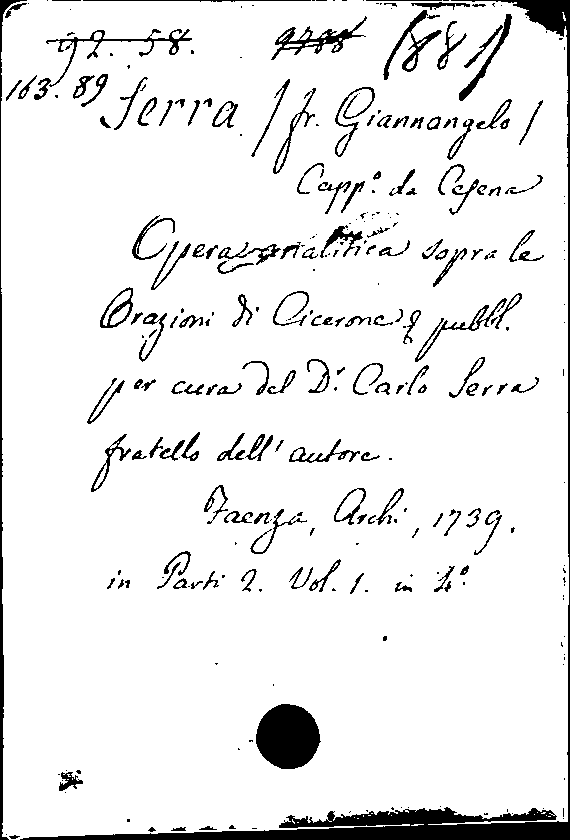 92. 58. 9788 (881)
163. 89
Serra / fr. Giannangelo /
Capp.º da Cesena
Opera analitica sopra le
Orazioni di Cicerone pubbl.
per cura del D.r Carlo Serra
fratello dell' autore.
Faenza, Archi, 1739.
in Parti 2. Vol. 1. in 4.º